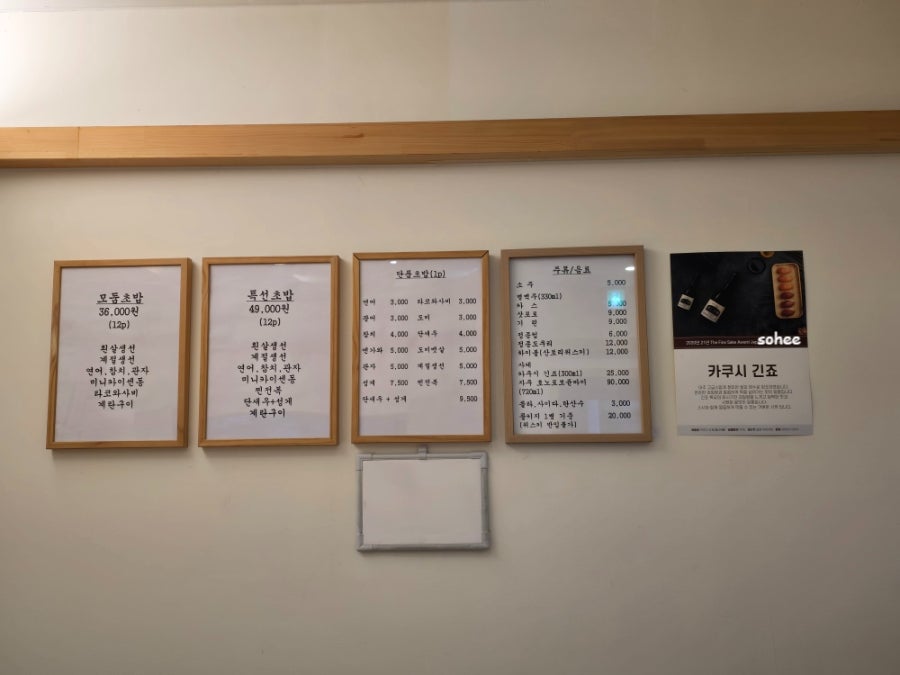 모둠초밥
36,000원
(12p)
흰살생선
계절생선
연어,참치,관자
미니카이센동
타코와사비
계란구이
특선초밥
49,000원
(12p)
흰살생선
계절생선
연어,참치,관자
미니카이센동
찐전복
단새우+성게
계란구이
단품초밥(1p)
연어 3,000 타코와사비 3,000
광어 3,000 도미 3,000
참치 4,000 단새우 4,000
엔가와 5,000 도미뱃살 5,000
관자 5,000 계절생선 5,000
성게 7,500 찐전복 7,500
단새우 + 성게 9,500
주류/음료
소 주 5,000
병맥주(330ml)
카 스
삿포로 9,000
기 린 9,000
정종일 6,000
정종도쿠리 12,000
하이볼(산토리위스키) 12,000
사케
카쿠시 긴죠(300ml) 25,000
90,000
(720ml)
콜라,사이다,탄산수 3,000
콜키지 1병 기준 20,000
(위스키 반입불가)
sohee
카쿠시 긴죠